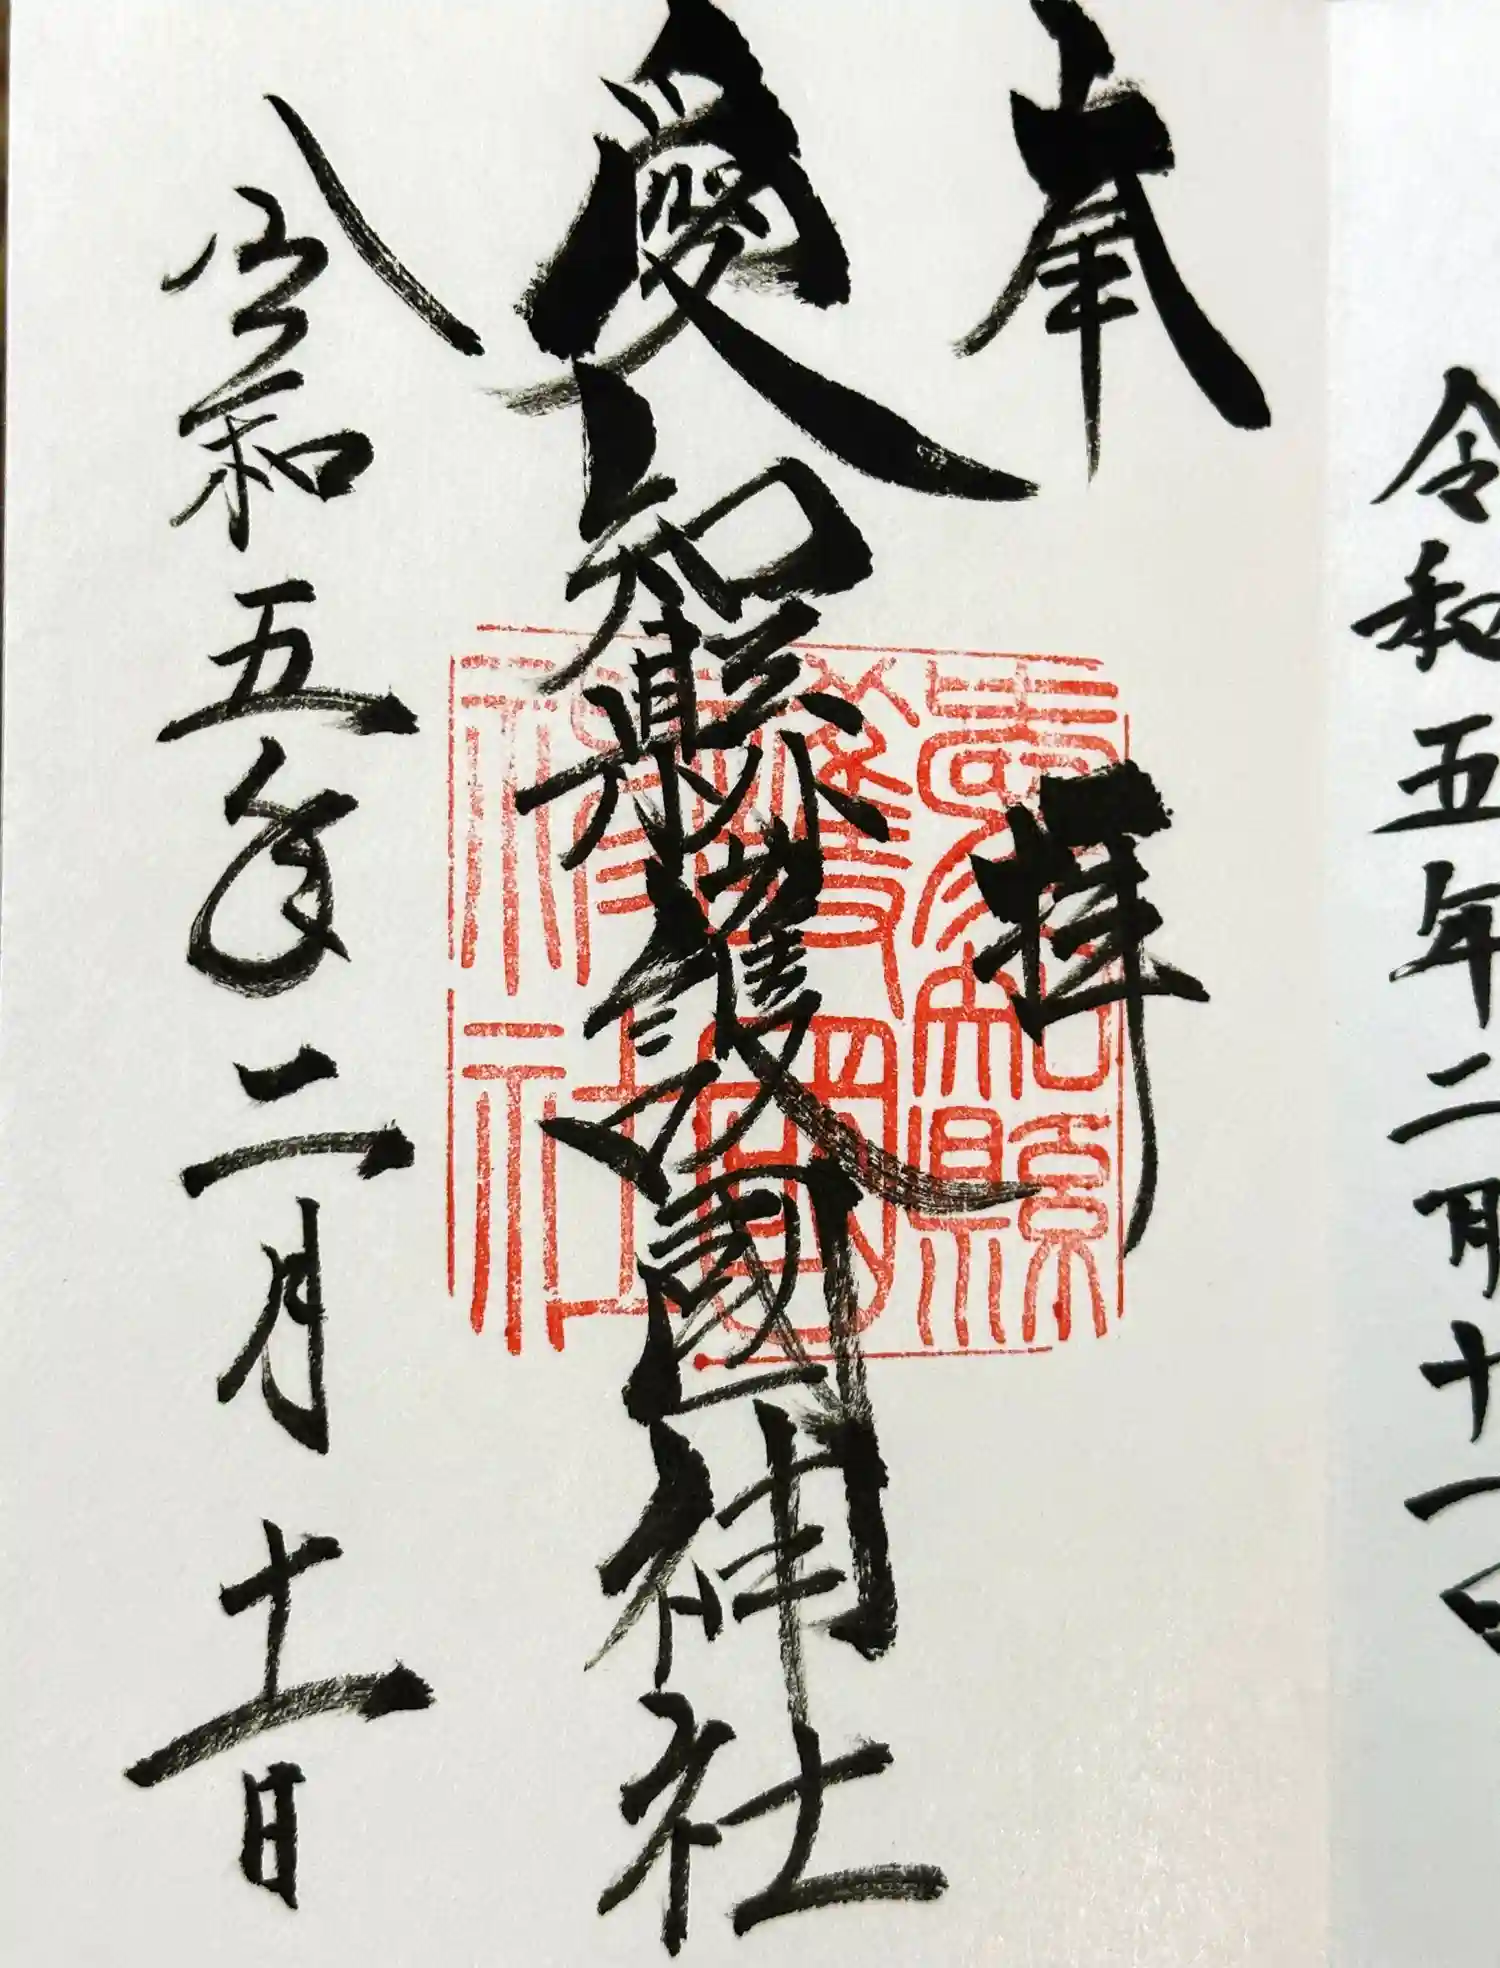 令和五年二月十一日
奉拝
愛知縣護國神社
愛知縣
護國
神社
令和五年二月十一日